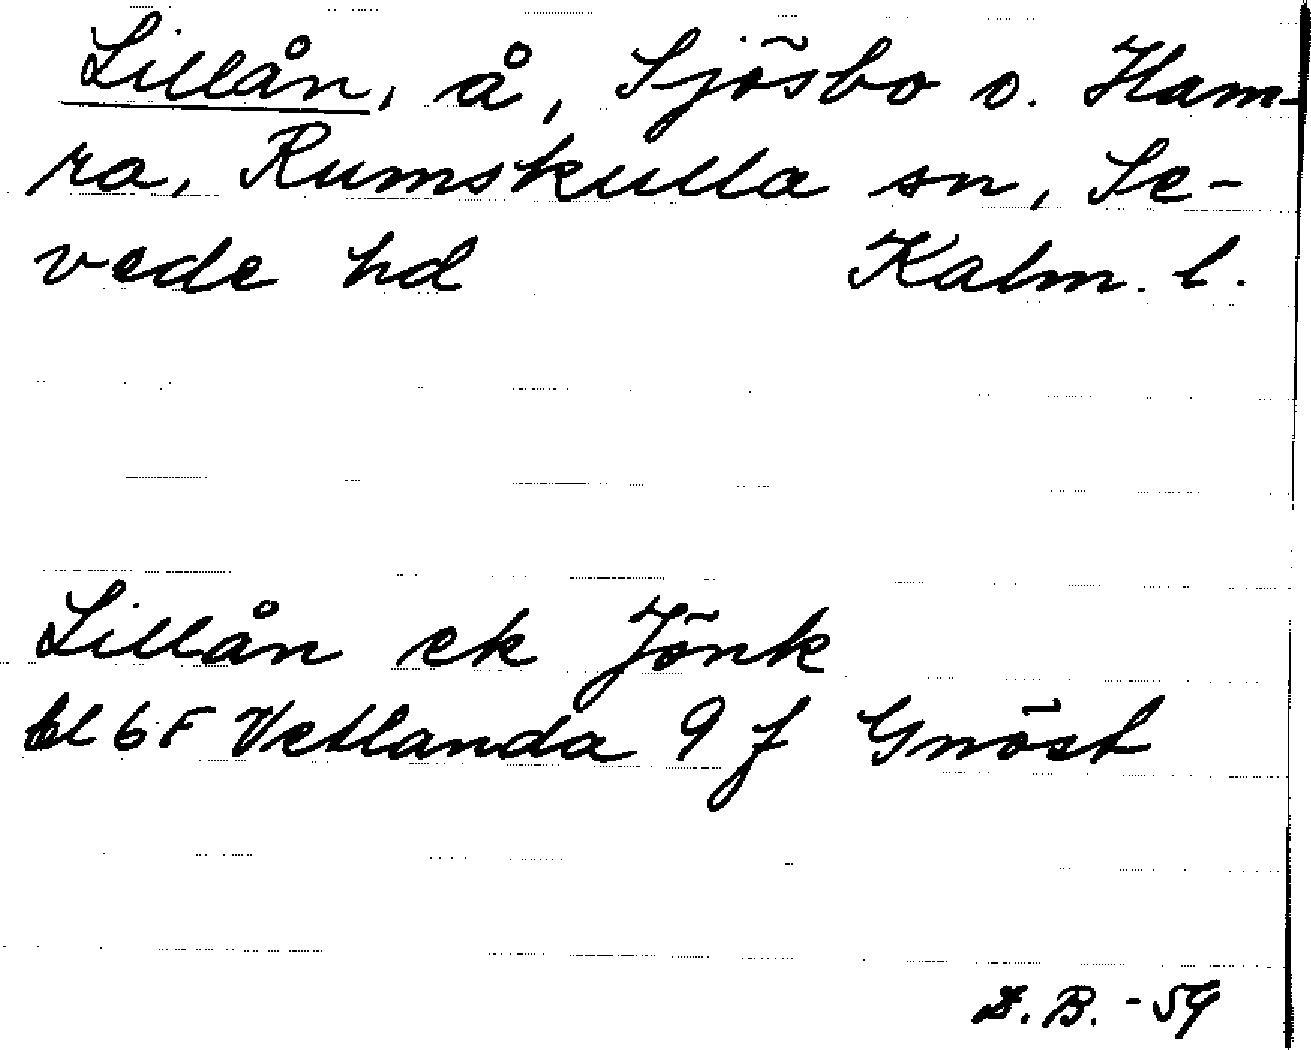 Lillån, å, Sjösbo o. Ham-
ra, Rumskulla sn, Se-
vede hd Kalm. l.
Lillån ek Jönk
bl 6 F Vetlanda 9 f Gnöst
B. -59